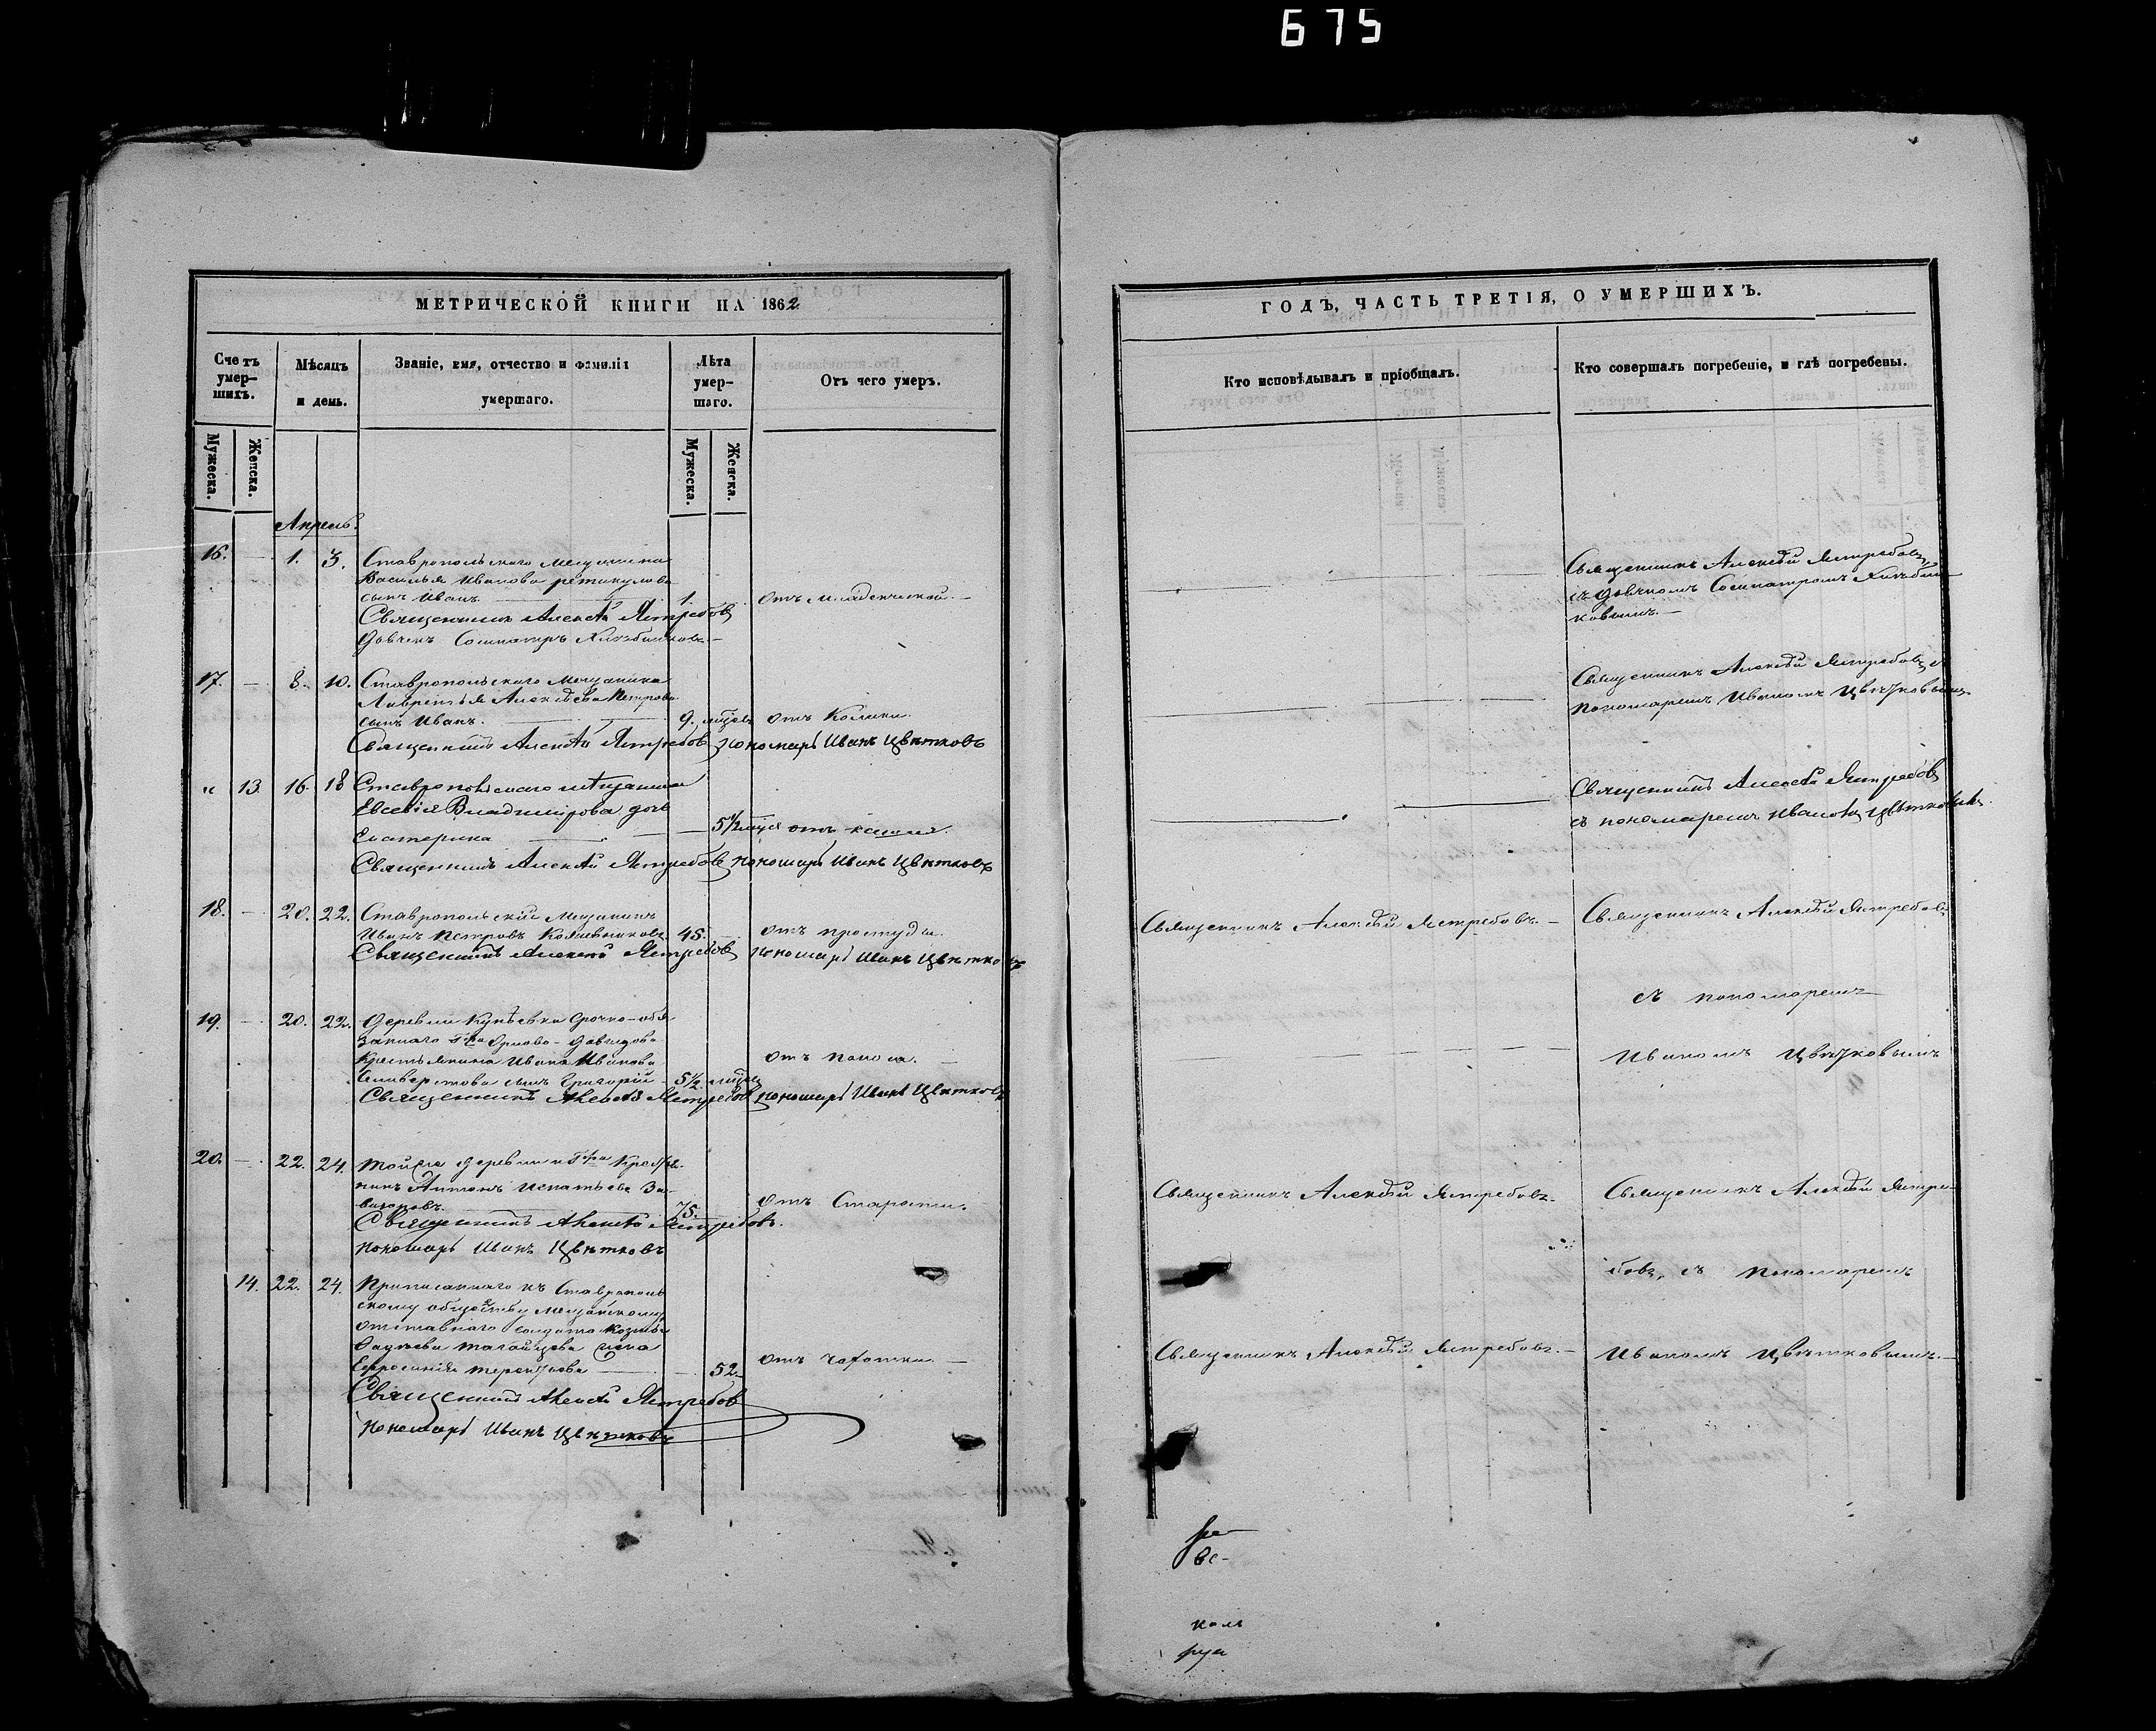 675
МЕТРИЧЕСКОЙ КНИГИ НА 1862
Счетъ умер-шихъ.
Мѣсяцъ и день.
Званіе, имя, отчество и фамилія умершаго.
Лѣта умер-шаго.
Отъ чего умеръ.
Мужеска.
Женска.
Мужеска.
Женска.
Апрель.
16. — 1. 3. Ставропольскаго Мещанина
Василья Иванова
сынъ Иванъ 1. отъ младенческой.—
Священникъ Алексѣй Ястребовъ
Дьячекъ Сосипатръ
17. — 8. 10. Ставропольскаго Мещанина
Лаврентья Алексѣева Петрова
сынъ Иванъ. 9. отъ Колики.
Священникъ Алексѣй Ястребовъ Пономарь Иванъ Цвѣтковъ
" 13. 16. 18 Ставропольскаго мещанина
Евсевія Владимірова дочь
Екатерина — 5½ отъ кашля.
Священникъ Алексѣй Ястребовъ Пономарь Иванъ Цвѣтковъ
18. — 20. 22. Ставропольскій Мещанинъ
Иванъ Петровъ 45. — отъ простуды.
Священникъ Алексѣй Ястребовъ Пономарь Иванъ Цвѣтковъ
19. — 20. 22. Деревни Кунѣевки срочно-обя
заннаго Г-на Орлова-Давыдова
Крестьянина Ивана Иванова отъ поноса. —
Селиверстова сынъ Григорій 5½
Священникъ Алексѣй Ястребовъ Пономарь Иванъ Цвѣтковъ
20. — 22. 24. Той же деревни и Г-на
нинъ Антонъ Игнатьевъ
75. отъ Старости.
Священникъ Алексѣй Ястребовъ.
Пономарь Иванъ Цвѣтковъ
14. 22. 24. Приписаннаго къ Ставрополь
скому обществу мещанскому
отставнаго солдата Козьмы
жена
Ефросинія Терентьева — — 52. отъ чахотки. —
Священникъ Алексѣй Ястребовъ
Пономарь Иванъ Цвѣтковъ
ГОДЪ, ЧАСТЬ ТРЕТІЯ, О УМЕРШИХЪ.
Кто исповѣдывалъ и пріобщалъ.
Кто совершалъ погребеніе, и гдѣ погребены.
Священникъ Алексѣй Ястребовъ
съ дьячкомъ Сосипатромъ
ковымъ.—
Священникъ Алексѣй Ястребовъ съ
Пономаремъ Иваномъ Цвѣтковымъ
Священникъ Алексѣй Ястребовъ
съ пономаремъ Иваномъ Цвѣтковымъ.
Священникъ Алексѣй Ястребовъ.—
Священникъ Алексѣй Ястребовъ
съ пономаремъ
Иваномъ Цвѣтковымъ
Священникъ Алексѣй Ястребовъ.
Священникъ Алексѣй Ястре-
бовъ, съ Пономаремъ
Священникъ Алексѣй Ястребовъ.—
Иваномъ Цвѣтковымъ.—